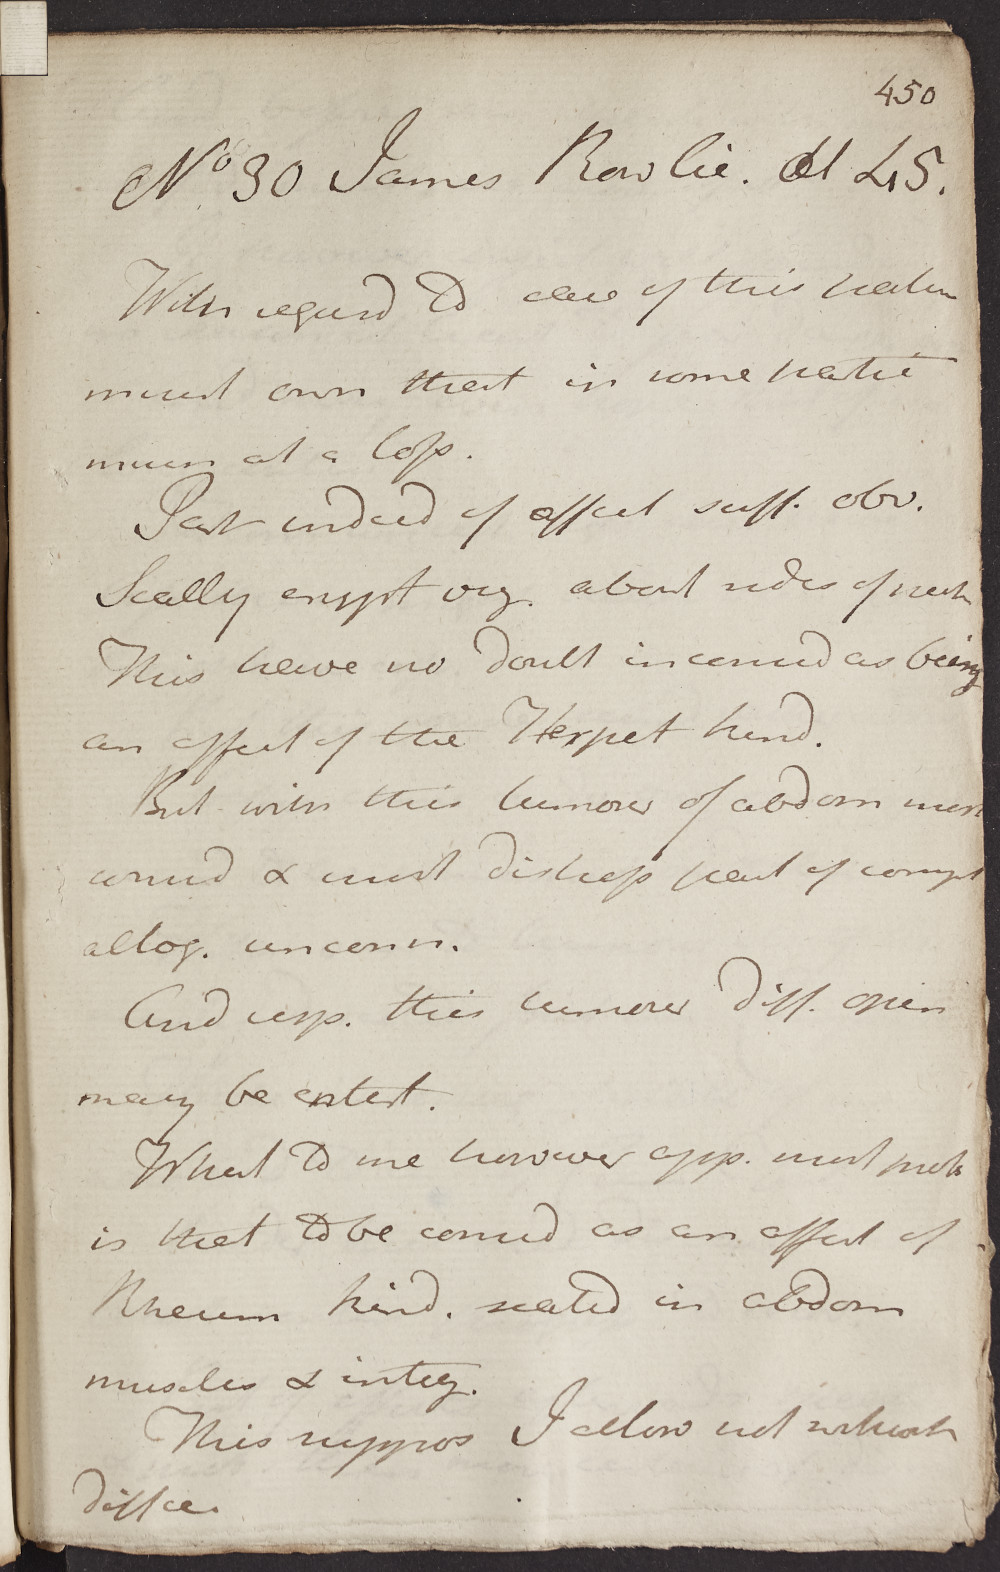 450
No 30 James Rowlie. Æt 45.
With regard to case of this patien
must own that in some partic
mum at a loss.
Part indeed of affect suff. obv.
Scally erupt orig. about sides of neck
This have no doubt in consid as being
an affect of the Herpet kind.
But with this tumour of abdom most
consid & most distress part of compt
altog. unconn.
And resp. this tumour diff. opin
may be entert.
What to me however app. most prob
is that to be consid as an affect of
Rheum kind. seated in abdom
muscles & integ.
This suppos I allow not without
diffce.